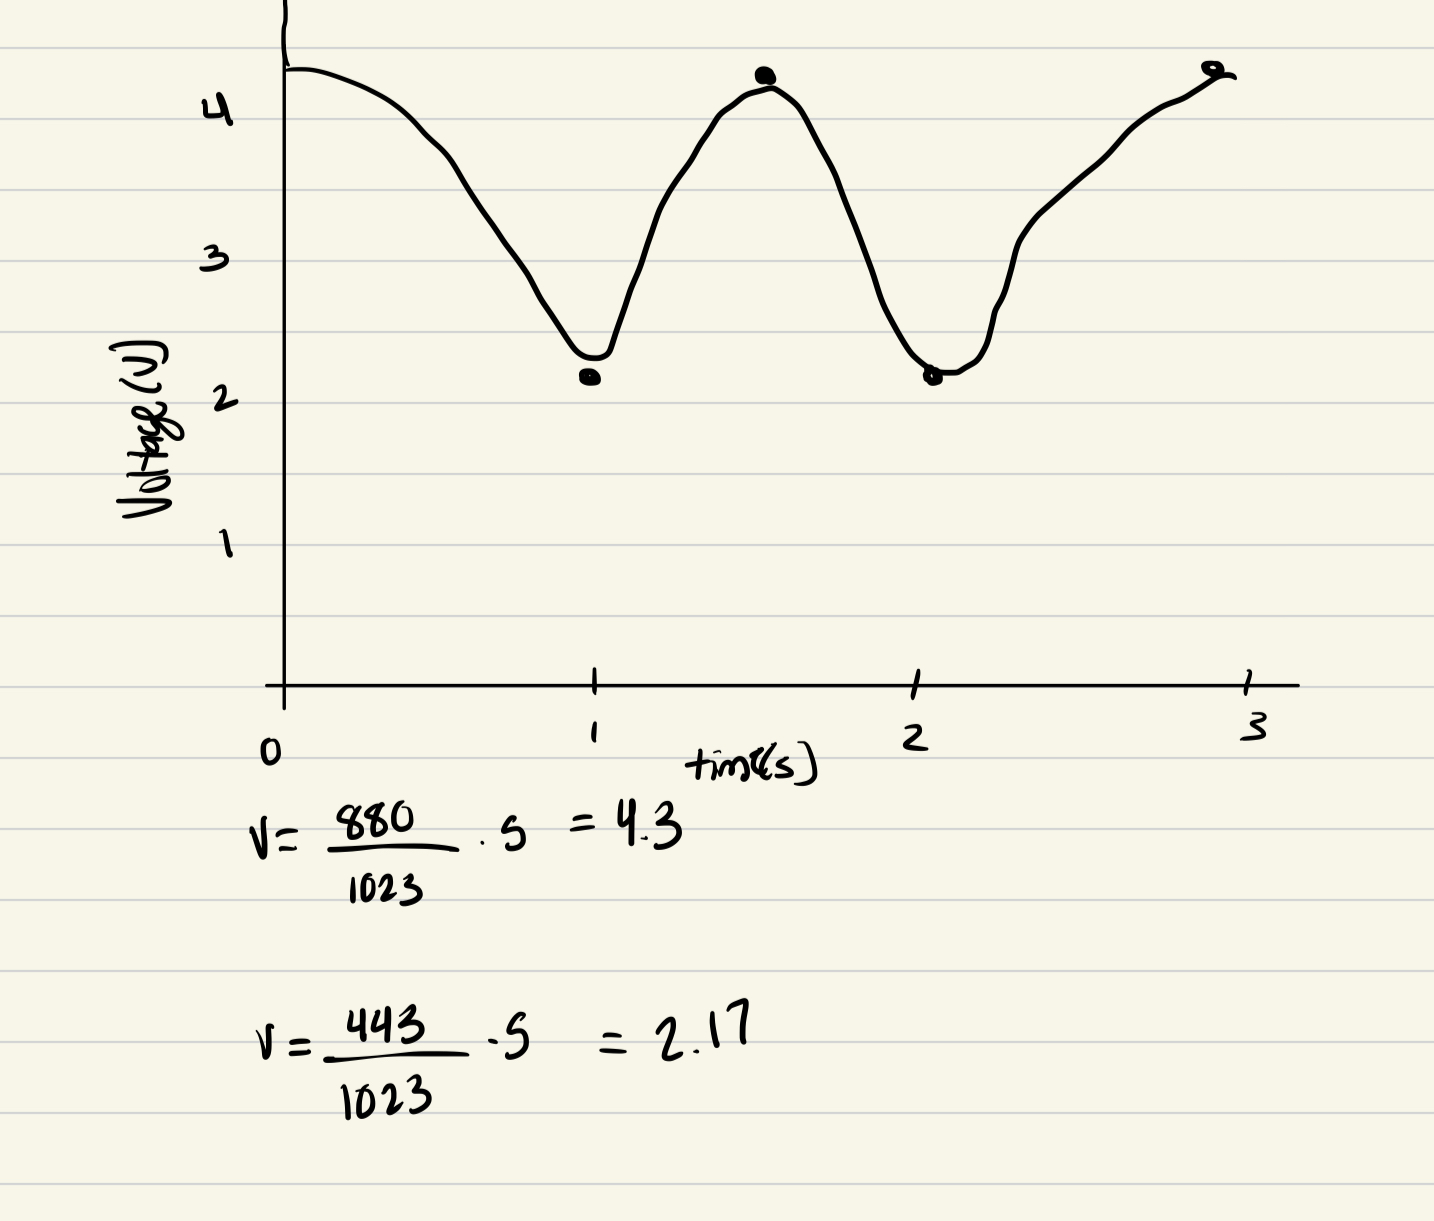 4
3
2
1
Voltage (V)
0 1 2 3
time(s)
V = 880/1023 · 5 = 4.3
V = 443/1023 · 5 = 2.17